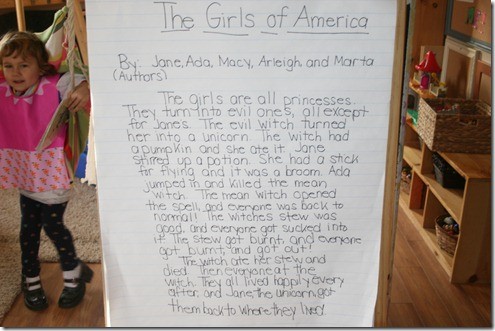 The Girls of America
By: Jane, Ada, Macy, Arleigh, and Marta
(Authors)
The girls are all princesses.
They turn into evil ones, all except
for Jane's. The evil witch turned
her into a unicorn. The witch had
a pumpkin and she ate it. Jane
stirred up a potion. She had a stick
for flying and it was a broom. Ada
jumped in and killed the mean
witch. The mean witch opened
the spell, and everyone was back to
normal! The witches stew was
good, and everyone got sucked into
it. The stew got burnt, and everyone
got burnt, and got out!
The witch ate her stew and
died. Then everyone ate the
witch. They all lived happily every
after, and Jane, the unicorn, got
them back to where they lived.